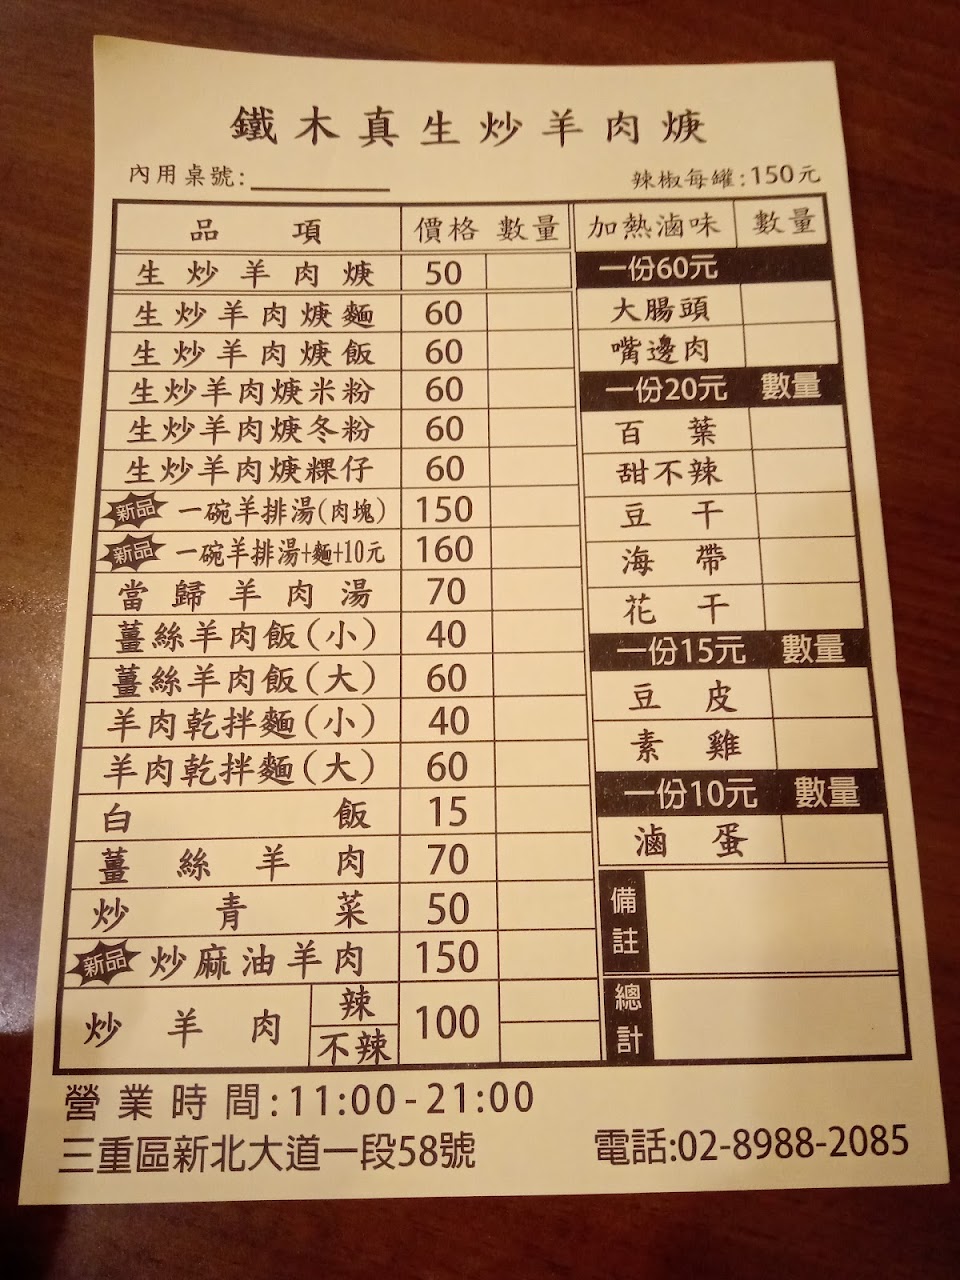 鐵木真生炒羊肉焿
內用桌號:
辣椒每罐:150元
品項 價格 數量
生炒羊肉焿 50
生炒羊肉焿麵 60
生炒羊肉焿飯 60
生炒羊肉焿米粉 60
生炒羊肉焿冬粉 60
生炒羊肉焿粿仔 60
新品 一碗羊排湯(肉塊) 150
新品 一碗羊排湯+麵+10元 160
當歸羊肉湯 70
薑絲羊肉飯(小) 40
薑絲羊肉飯(大) 60
羊肉乾拌麵(小) 40
羊肉乾拌麵(大) 60
白飯 15
薑絲羊肉 70
炒青菜 50
新品 炒麻油羊肉 150
炒羊肉 辣 不辣 100
加熱滷味 數量
一份60元
大腸頭
嘴邊肉
一份20元 數量
百葉
甜不辣
豆干
海帶
花干
一份15元 數量
豆皮
素雞
一份10元 數量
滷蛋
備註
總計
營業時間:11:00-21:00
三重區新北大道一段58號
電話:02-8988-2085